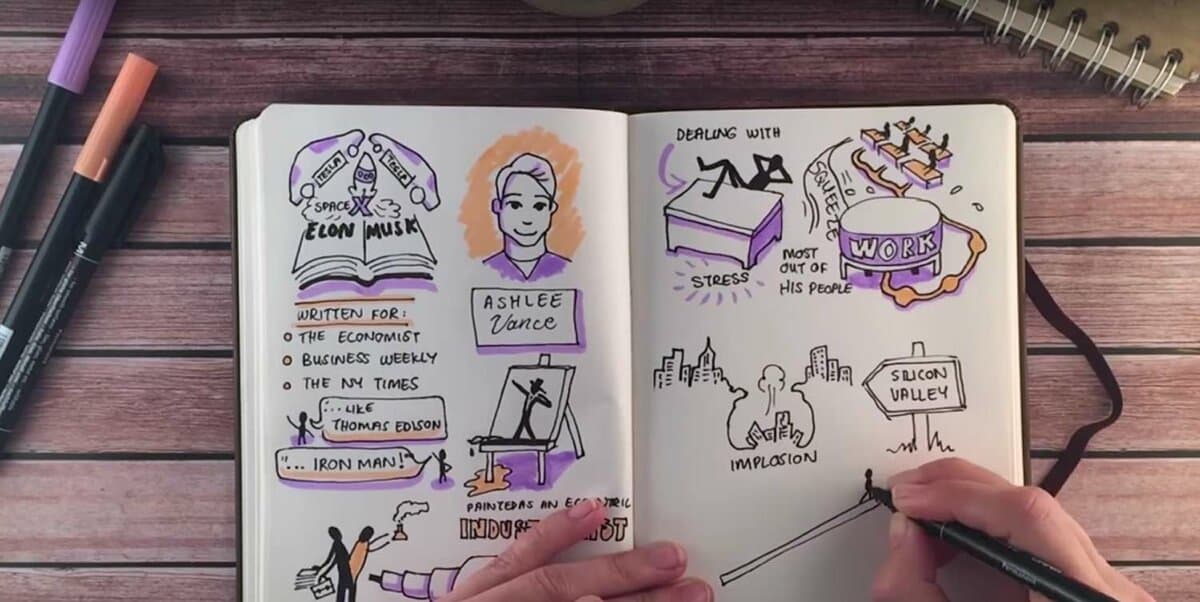 TESLA
TESLA
SPACE X
ELON MUSK
WRITTEN FOR:
THE ECONOMIST
BUSINESS WEEKLY
THE NY TIMES
"... LIKE
THOMAS EDISON
"... IRON MAN!"
ASHLEE
Vance
PAINTED AS AN
DEALING WITH
STRESS
SQUEEZE
MOST
OUT OF
HIS PEOPLE
WORK
IMPLOSION
SILICON
VALLEY